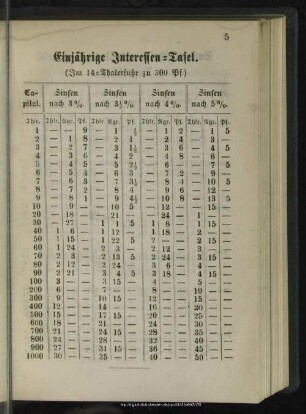 5
Einjährige Interessen=Tafel.
(Im 14=Thalerfuße zu 300 Pf.)
Ca- Zinsen Zinsen Zinsen Zinsen
pital. nach 3 %. nach 3½ %. nach 4 %. nach 5 %.
Thlr. Thlr. Ngr. Pf. Thlr. Ngr. Pf. Thlr. Ngr. Pf. Thlr. Ngr. Pf.
1 — — 9 — 1 ½ — 1 2 — 1 5
2 — 1 8 — 2 1 — 2 4 — 3 —
3 — 2 7 — 3 1½ — 3 6 — 4 5
4 — 3 6 — 4 2 — 4 8 — 6 —
5 — 4 5 — 5 2½ — 6 — — 7 5
6 — 5 4 — 6 3 — 7 2 — 9 —
7 — 6 3 — 7 3½ — 8 4 — 10 5
8 — 7 2 — 8 4 — 9 6 — 12 —
9 — 8 1 — 9 4½ — 10 8 — 13 5
10 — 9 — — 10 5 — 12 — — 15 —
20 — 18 — — 21 — — 24 — 1 — —
30 — 27 — 1 1 5 1 6 — 1 15 —
40 1 6 — 1 12 — 1 18 — 2 — —
50 1 15 — 1 22 5 2 — — 2 15 —
60 1 24 — 2 3 — 2 12 — 3 — —
70 2 3 — 2 13 5 2 24 — 3 15 —
80 2 12 — 2 24 — 3 6 — 4 — —
90 2 21 — 3 4 5 3 18 — 4 15 —
100 3 — — 3 15 — 4 — — 5 — —
200 6 — — 7 — — 8 — — 10 — —
300 9 — — 10 15 — 12 — — 15 — —
400 12 — — 14 — — 16 — — 20 — —
500 15 — — 17 15 — 20 — — 25 — —
600 18 — — 21 — — 24 — — 30 — —
700 21 — — 24 15 — 28 — — 35 — —
800 24 — — 28 — — 32 — — 40 — —
900 27 — — 31 15 — 36 — — 45 — —
1000 30 — — 35 — — 40 — — 50 — —